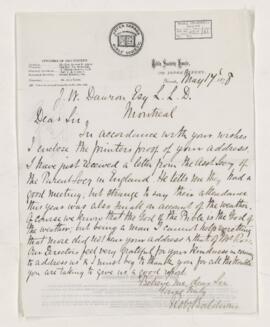 Bible Society House,
May 17th 1878
J. W. Dawson Esq L. L. D.
Montreal
Dear Sir,
In accordance with your wishes
I enclose the printers proof of your address.
I have just received a letter from the Asst Secy of
the Parent Socy in England. He tells me they had a
good meeting, but strange to say their attendance
this year was also small on account of the weather.
Of course we know that the God of the Bible is the God of
the weather, but being a man I cannot help regretting
that more did not hear your address
Our Directors feel very grateful for your kindness in coming
to address us & I must beg to thank you for all the trouble
you are taking to give us a good report.
Believe me dear Sir
Yours truly
Robt Baldwin